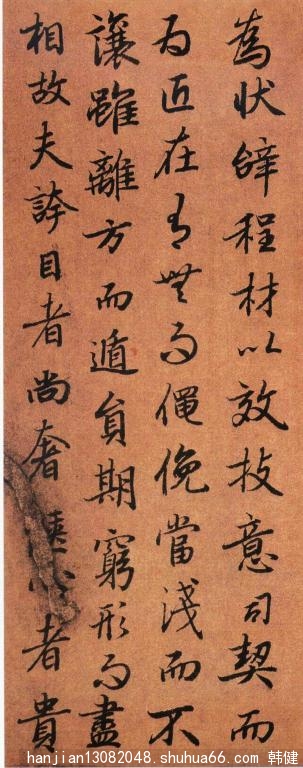 為狀辭程材以效技意司契而
為匠在有無而僶俛當淺而不
讓雖離方而遁員期窮形而盡
相故夫誇目者尚奢愜心者貴
hanjian13082048.shuhua66.com 韩健